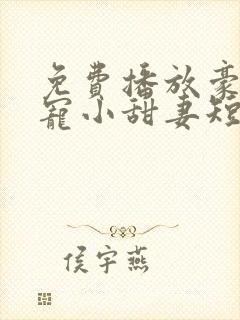 免費播放豪
寵小甜妻短
侯宇燕